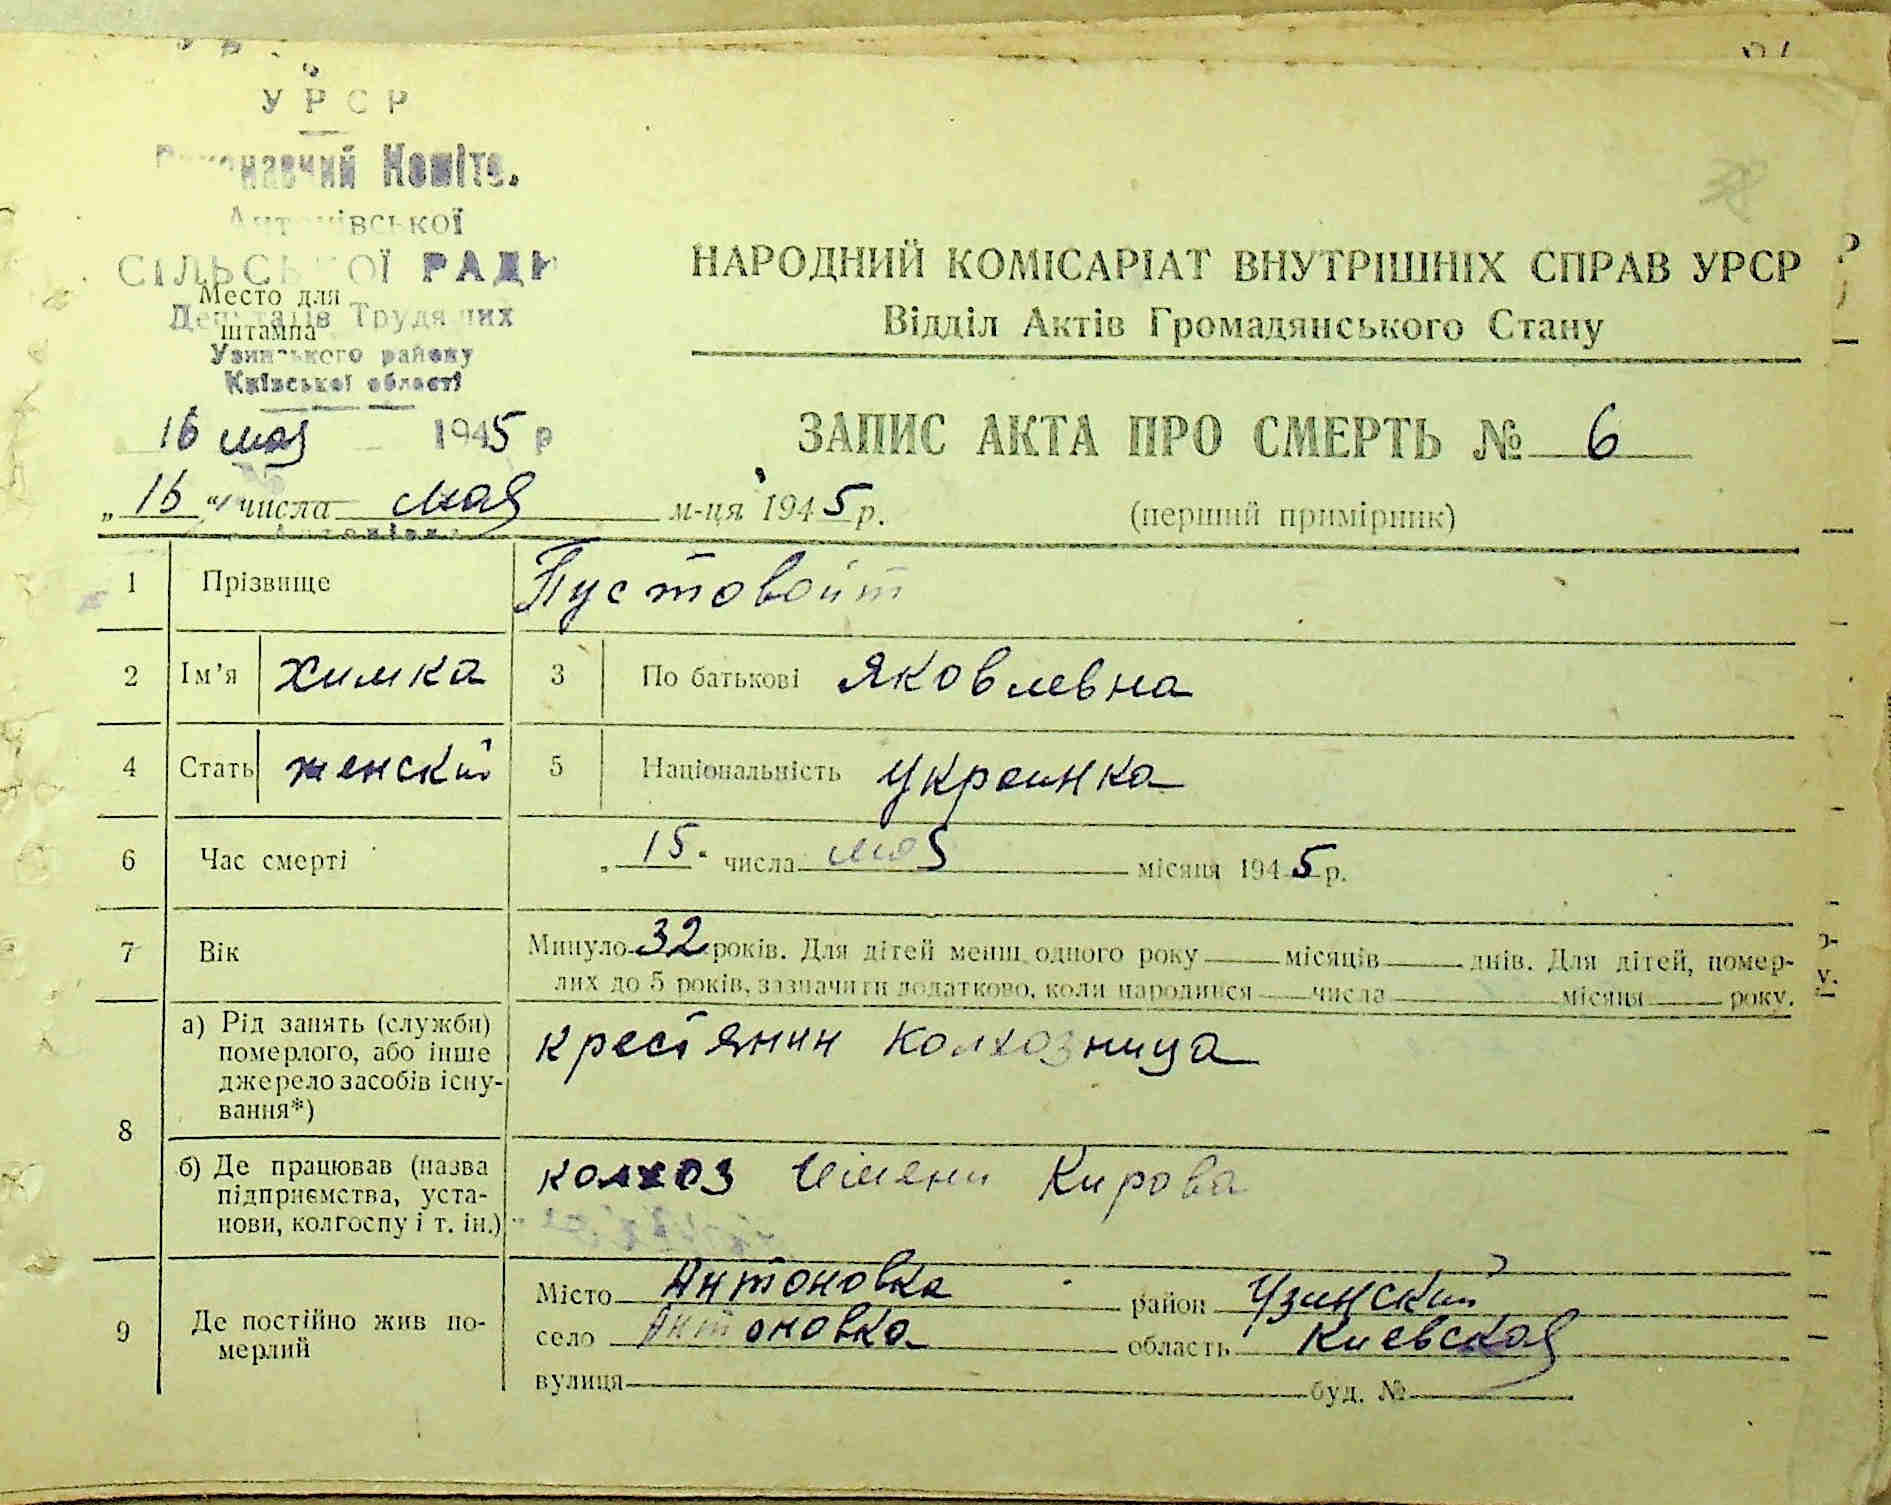 УРСР
Антонівської
СІЛЬСЬКОЇ РАДИ
Место для
Депутатів Трудящих
штампа
Узинського району
Київської області
16 мая 1945 р
НАРОДНИЙ КОМІСАРІАТ ВНУТРІШНІХ СПРАВ УРСР
Відділ Актів Громадянського Стану
ЗАПИС АКТА ПРО СМЕРТЬ № 6
„16“ числа мая м-ця 1945 р.
(перший примірник)
1 Прізвище Пустовойт
2 Ім’я Химка 3 По батькові Яковлевна
4 Стать женский 5 Національність Украинка
6 Час смерті „15“ числа мая місяця 1945 р.
7 Вік Минуло 32 років. Для дітей менш одного року місяців днів. Для дітей, помер-
лих до 5 років, зазначити додатково, коли народився числа місяця року.
8 а) Рід занять (служби) крестянин колхозница
померлого, або інше
джерело засобів існу-
вання*)
б) Де працював (назва колхоз Имени Кирова
підприємства, уста-
нови, колгоспу і т. ін.)
9 Де постійно жив по-
мерлий
Місто Антоновка район Узинский
село Антоновка область Киевская
вулиця буд. №